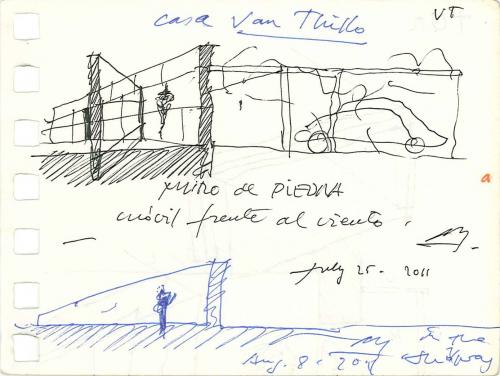 VT
casa Van Thillo
muro de PIEDRA
móvil frente al viento.
July 25 - 2011
a
Aug. 8 - 2011